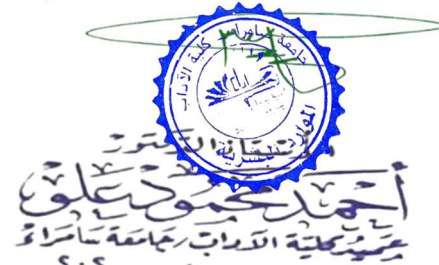 جامعة سامراء كلية الآداب
الموارد البشرية
الأستاذ الدكتور
أحمد محمود علو
عميد كلية الآداب / جامعة سامراء